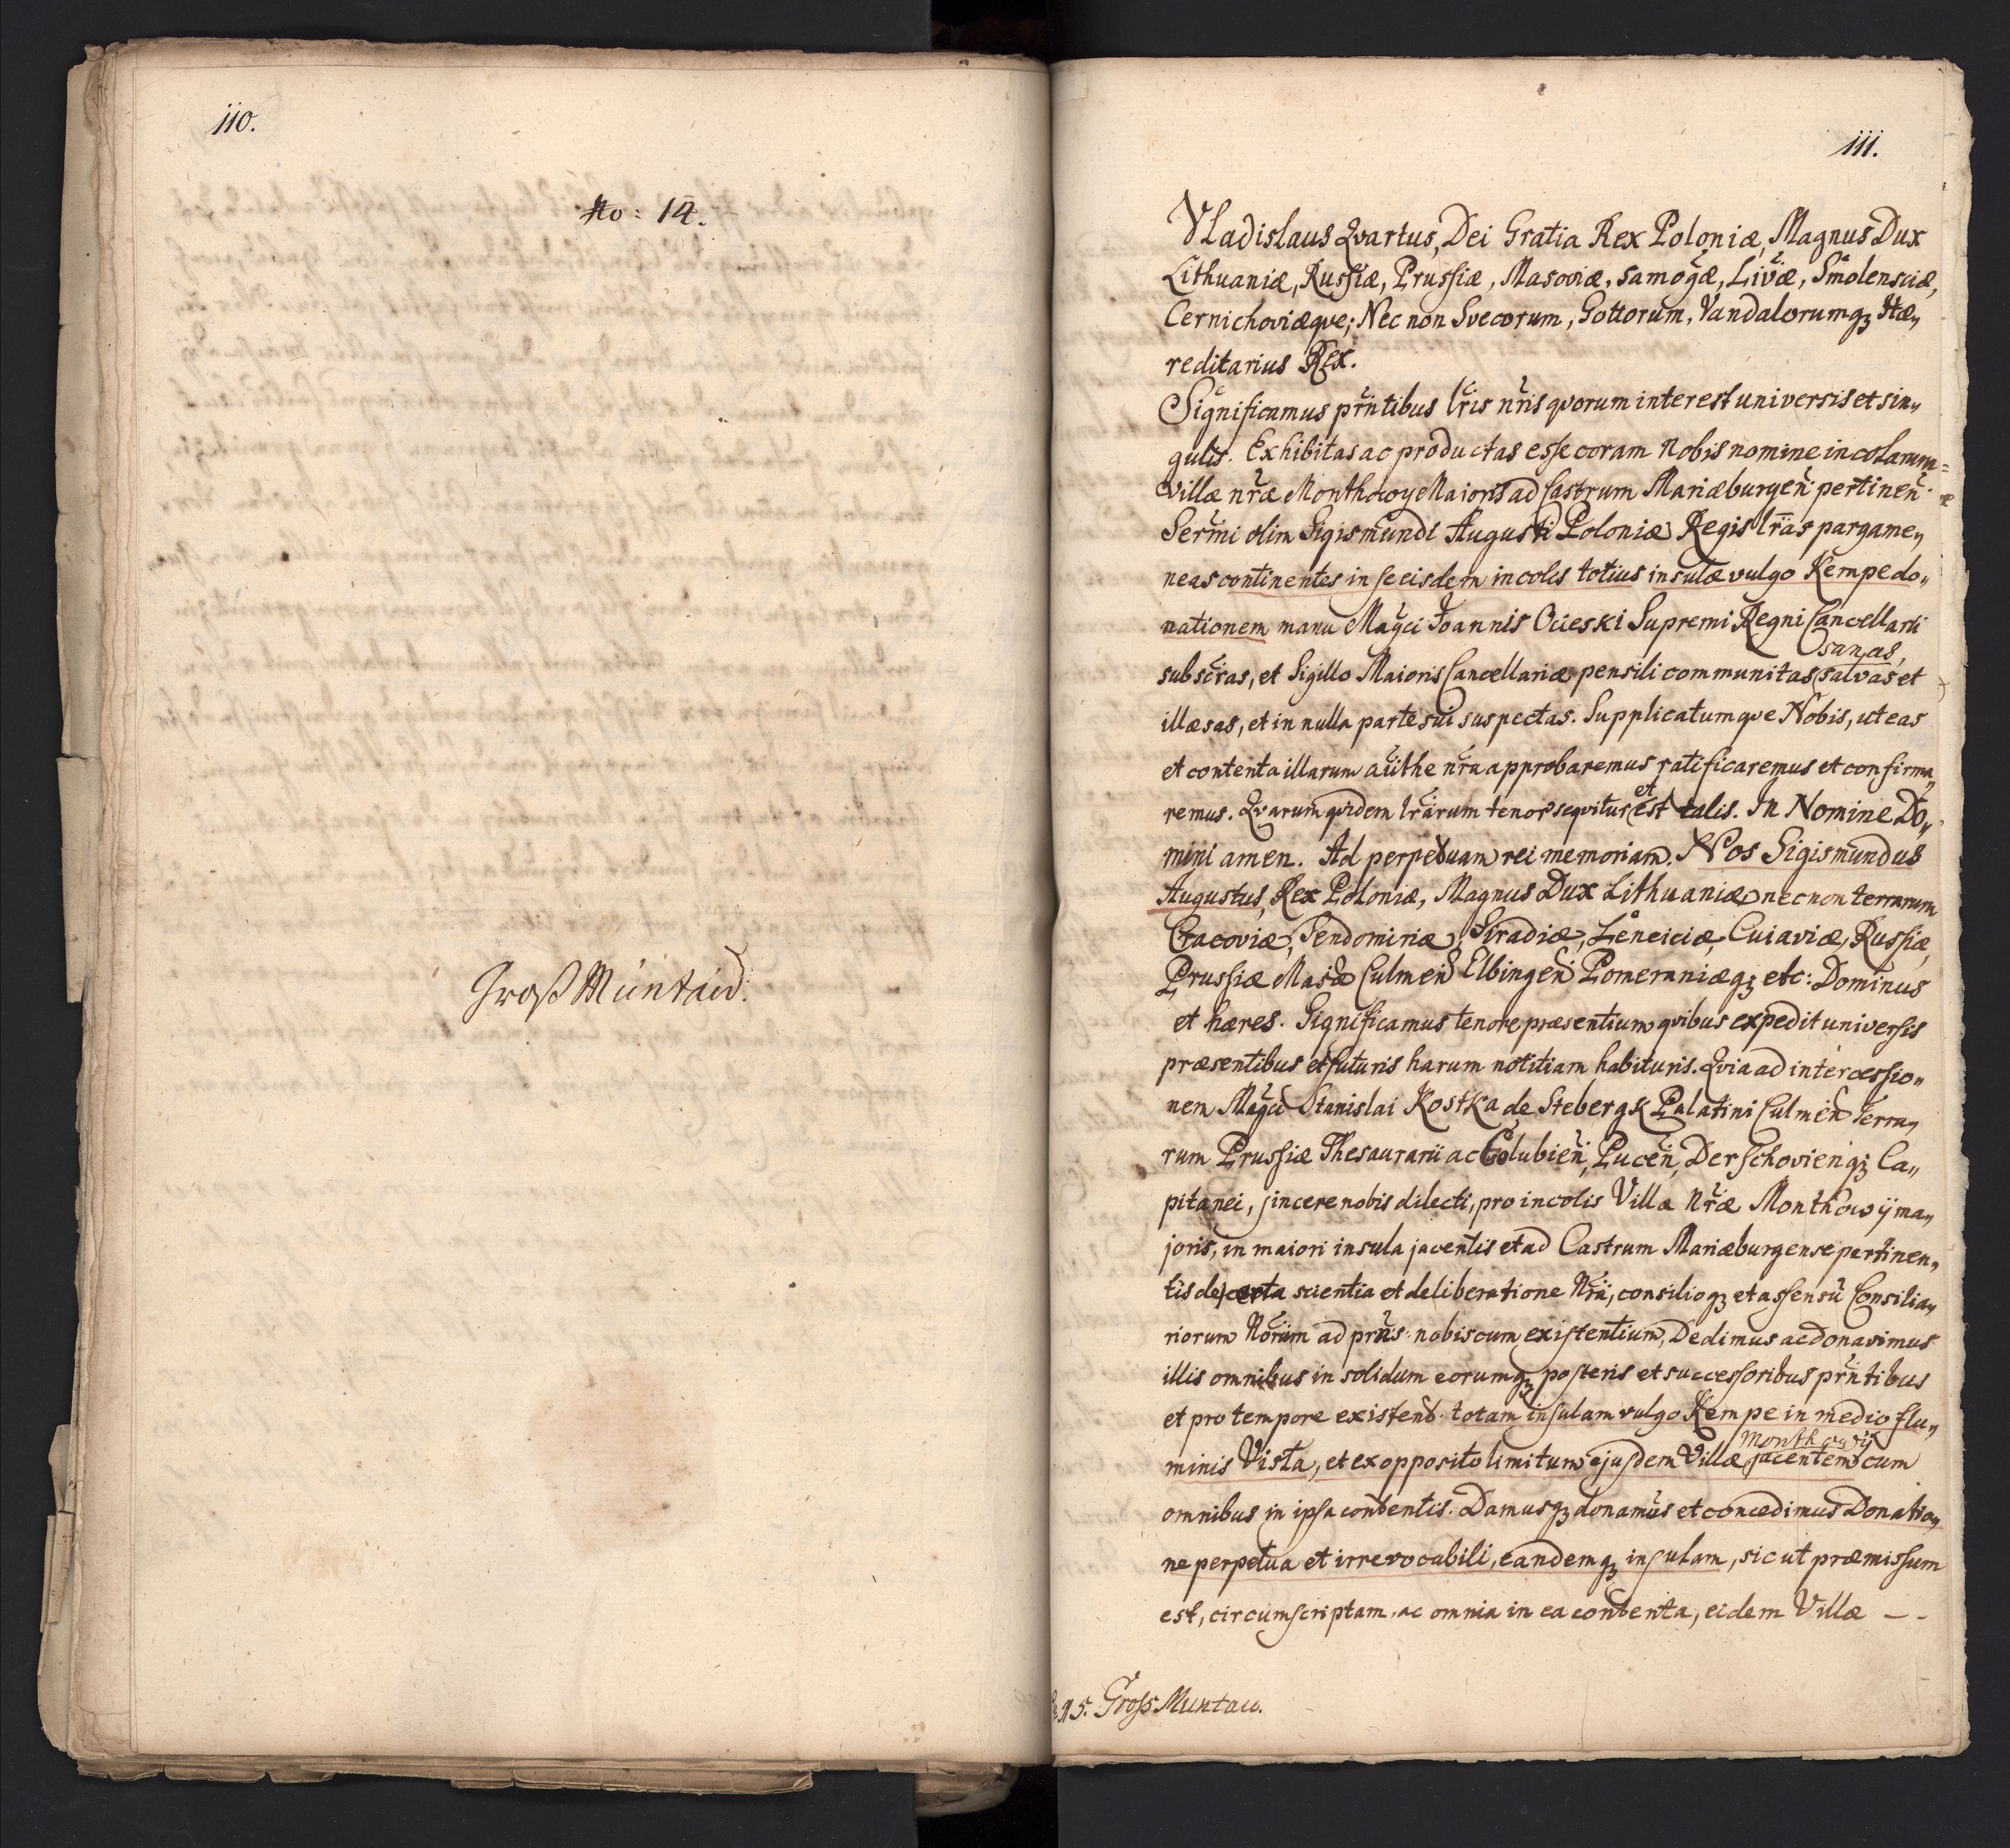 110.
No: 14.
Groß Muntau.
111.
Vladislaus Qvartus, Dei Gratia Rex Poloniæ, Magnus Dux
Lithuaniæ, Russiæ, Prussiæ, Masoviæ, Samogæ, Livæ, Smolensciæ,
Cernichoviæqve; Nec non Svecorum, Gottorum, Vandalorumq3 Hæ„
reditarius Rex.
Significamus prntibus lris nris qvorum interest universis et sin„
gulis. Exhibitas ac productas esse coram Nobis nomine incolarum
Villæ nræ Monthowy Maioris ad Castrum Mariæburgen pertinen
Sermi olim Sigismundi Augusti Poloniæ Regis lras pargame„
neas continentes in se eisdem incolis totius insulæ vulgo Kempe do„
nationem manu Magci Joannis Ocieski Supremi Regni Cancellarii
sanas,
subscras, et Sigillo Maioris Cancellariæ pensili communitas salvas et
illæsas, et in nulla parte sui suspectas. Supplicatumqve Nobis, ut eas
et contenta illarum authe nra approbaremus ratificaremus et confirma„
remus. Qvarum qvidem lrarum tenor seqvitur et est talis. In Nomine Do„
mini amen. Ad perpetuam rei memoriam. Nos Sigismundus
Augustus, Rex Poloniæ, Magnus Dux Lithuaniæ necnon terrarum
Cracoviæ, Sendomiriæ, Siradiæ, Lenciciæ, Cuiaviæ, Russiæ,
Prussiæ Masæ Culmen Elbingen Pomeraniæq3 etc: Dominus
et hæres. Significamus tenore præsentium qvibus expedit universis
præsentibus et futuris harum notitiam habituris. Qvia ad intercessio„
nem Magci Stanislai Kostka de Stebergk Palatini Culmen Terra„
rum Prussiæ Thesaurarii ac Golubien, Pucen, Derschovienq3 Ca„
pitanei, sincere nobis dilecti, pro incolis Villæ Nræ Monthowÿ ma„
joris, in maiori insula jacentis et ad Castrum Mariæburgense pertinen„
tis de certa scientia et deliberatione Nra, consilioq3 et assensu Consilia„
riorum Norum ad prns nobiscum existentium, Dedimus ac donavimus
illis omnibus in solidum eorumq3 posteris et successoribus prntibus
et pro tempore existent totam insulam vulgo Kempe in medio flu„
Monthowÿ
minis Vista, et ex opposito limitum ejusdem Villæ jacentem cum
omnibus in ipsa contentis. Damusq3 donamus et concedimus Donatio„
ne perpetua et irrevocabili, eandemq3 insulam, sicut præmissum
est, circumscriptam, ac omnia in ea contenta, eidem Villæ — -
N 5. Gross Muntau.